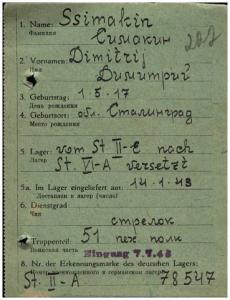 1. Name: Ssimakin
Фамилия Симакин 202
2. Vornamen: Dimitrij
Имя Димитрий
3. Geburtstag: 1.5.17
День рождения
4. Geburtsort: обл. Сталинград
Место рождения
5. Lager: vom St. II-C nach
Лагер St. VI-A versetzt
5a. Im Lager eingeliefert am: 14.1.43
Доставлен в лагер (число)
6. Dienstgrad:
Чин стрелок
Truppenteil: 51 пех. полк
Воинская часть Eingang 7.7.43
8. Nr. der Erkennungsmarke des deutschen Lagers:
St. II-A 78547